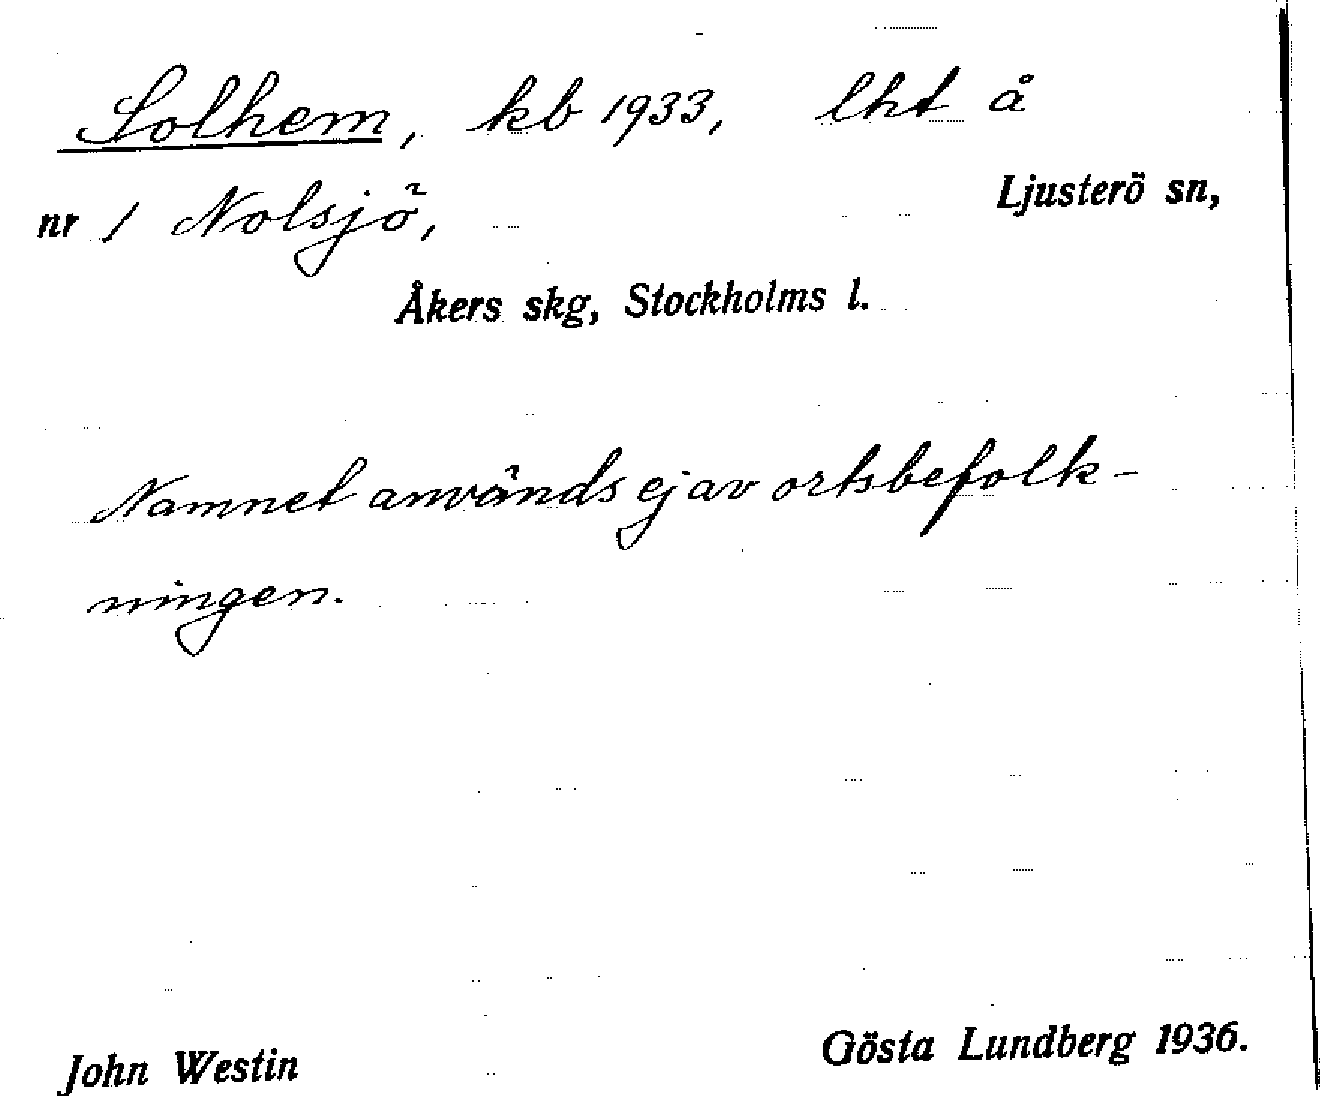 Solhem, kb 1933, lht å
nr 1 Nolsjö, Ljusterö sn,
Åkers skg, Stockholms l.
Namnet används ej av ortsbefolk-
ningen.
John Westin Gösta Lundberg 1936.